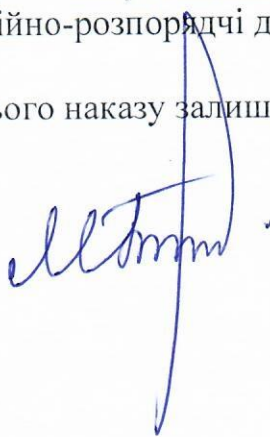 ійно-розпорядчі д
ього наказу залиш